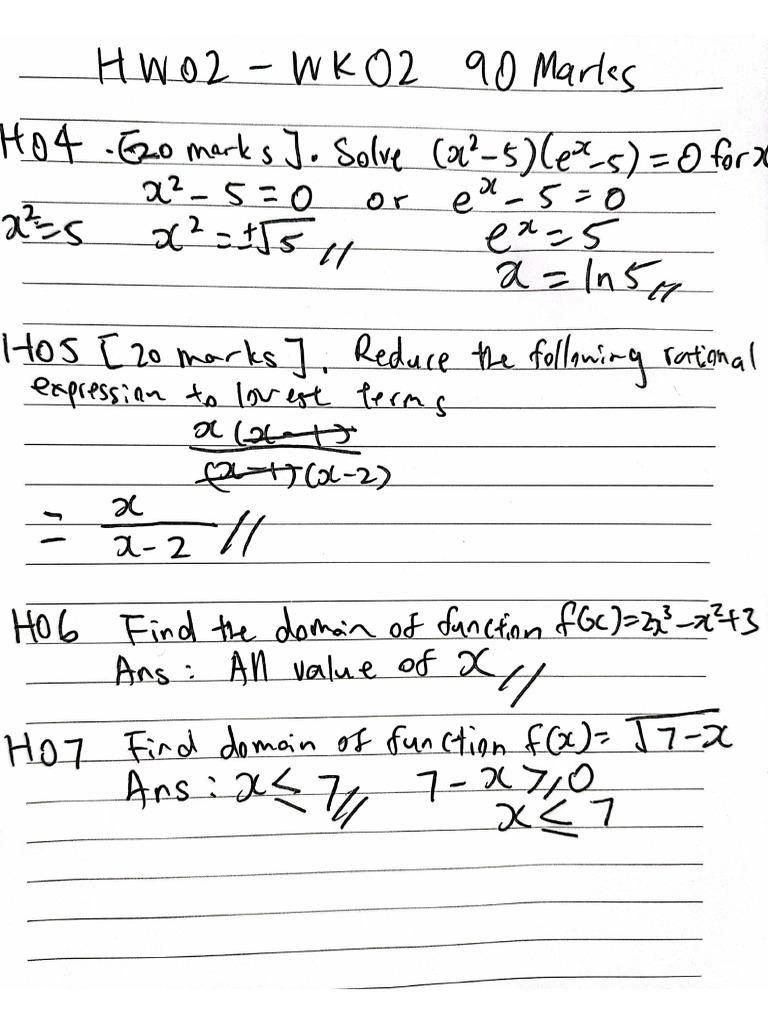 HW02 - WK02 90 Marks
H04 . [20 marks]. Solve (x²-5)(eˣ-5)=0 for x
x² - 5 = 0 or eˣ - 5 = 0
x²=5 x² = ±√5 // eˣ = 5
x = ln 5 //
H05 [20 marks]. Reduce the following rational
expression to lowest terms
x(x-1)
(x-1)(x-2)
= x
x-2 //
H06 Find the domain of function f(x)=2x³-x²+3
Ans: All value of x //
H07 Find domain of function f(x)= √7-x
Ans: x ≤ 7 // 7 - x ≥ 0
x ≤ 7